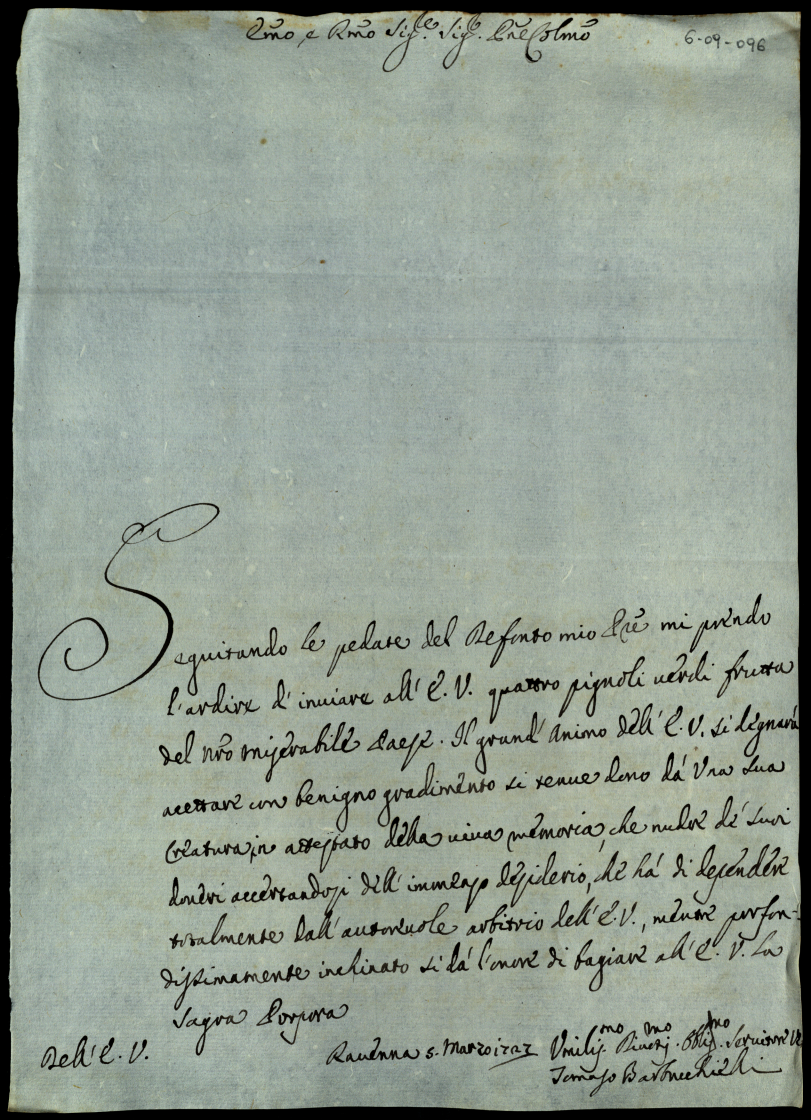 Emo e Rmo Sigre Sigre Pne Colmo
6-09-096
Seguitando le pedate del Defonto mio Pre mi prendo
l'ardire d'inviare all'E.V. quattro pignoli verdi frutta
del nro miserabile Paese. Il grand'Animo dell'E.V. si degnarà
accettare con benigno gradimento si tenue dono da Una sua
Creatura, in attestato della viva memoria, che nudre de suoi
doveri accertandosi dell'immenso desiderio, che há di dependere
totalmente dall'autorevole arbitrio dell'E.V., mentre profon-
dissimamente inchinato si dá l'onore di bagiare all'E.V. la
sagra Porpora
Dell'E.V.
Ravenna 5. Marzo 1727
Umilismo Rivermo Obligmo Servitore
Tomaso